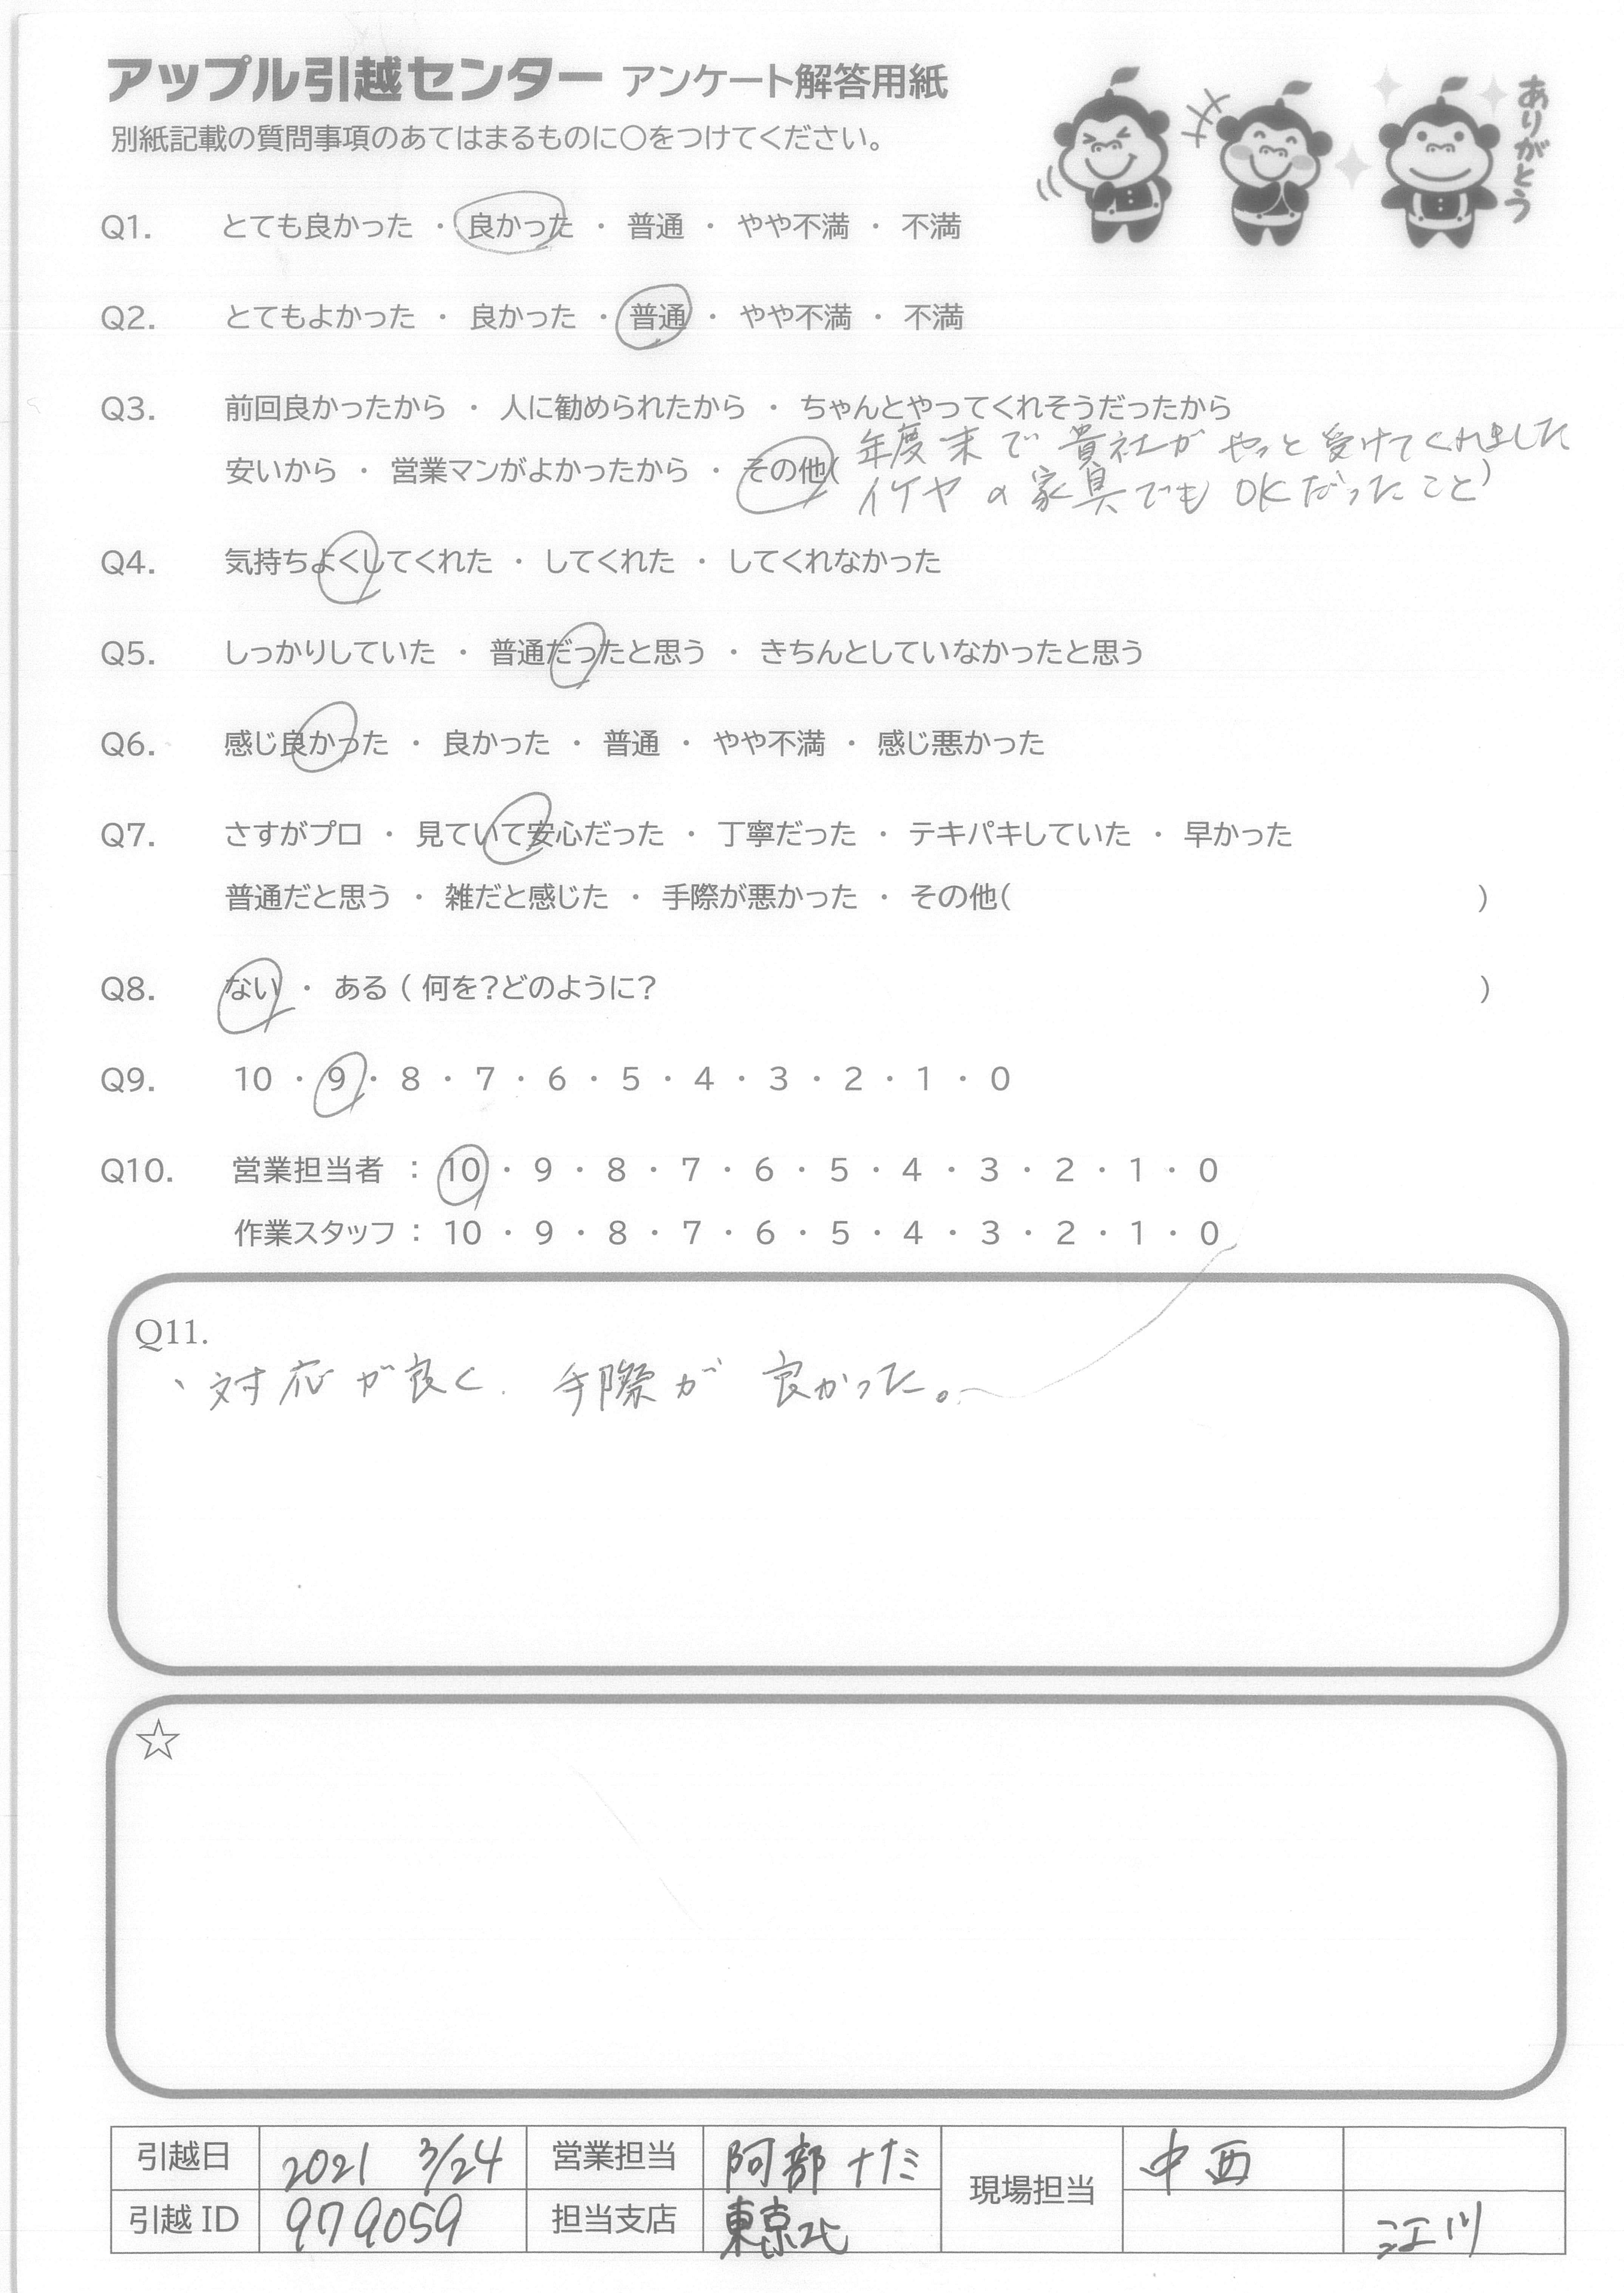 アップル引越センター アンケート解答用紙
別紙記載の質問事項のあてはまるものに〇をつけてください。
ありがとう
Q1. とても良かった ・ 良かった ・ 普通 ・ やや不満 ・ 不満
Q2. とてもよかった ・ 良かった ・ 普通 ・ やや不満 ・ 不満
Q3. 前回良かったから ・ 人に勧められたから ・ ちゃんとやってくれそうだったから
年度末で貴社がやっと受けてくれました
安いから ・ 営業マンがよかったから ・ その他(
イケヤの家具でもOKだったこと)
Q4. 気持ちよくしてくれた ・ してくれた ・ してくれなかった
Q5. しっかりしていた ・ 普通だったと思う ・ きちんとしていなかったと思う
Q6. 感じ良かった ・ 良かった ・ 普通 ・ やや不満 ・ 感じ悪かった
Q7. さすがプロ ・ 見ていて安心だった ・ 丁寧だった ・ テキパキしていた ・ 早かった
普通だと思う ・ 雑だと感じた ・ 手際が悪かった ・ その他( )
Q8. ない ・ ある ( 何を?どのように? )
Q9. 10 ・ 9 ・ 8 ・ 7 ・ 6 ・ 5 ・ 4 ・ 3 ・ 2 ・ 1 ・ 0
Q10. 営業担当者 : 10 ・ 9 ・ 8 ・ 7 ・ 6 ・ 5 ・ 4 ・ 3 ・ 2 ・ 1 ・ 0
作業スタッフ : 10 ・ 9 ・ 8 ・ 7 ・ 6 ・ 5 ・ 4 ・ 3 ・ 2 ・ 1 ・ 0
Q11.
、対応が良く、手際が良かった。
☆
引越日 2021 3/24 営業担当 阿部 現場担当 中西
引越 ID 979059 担当支店 東京北 江川